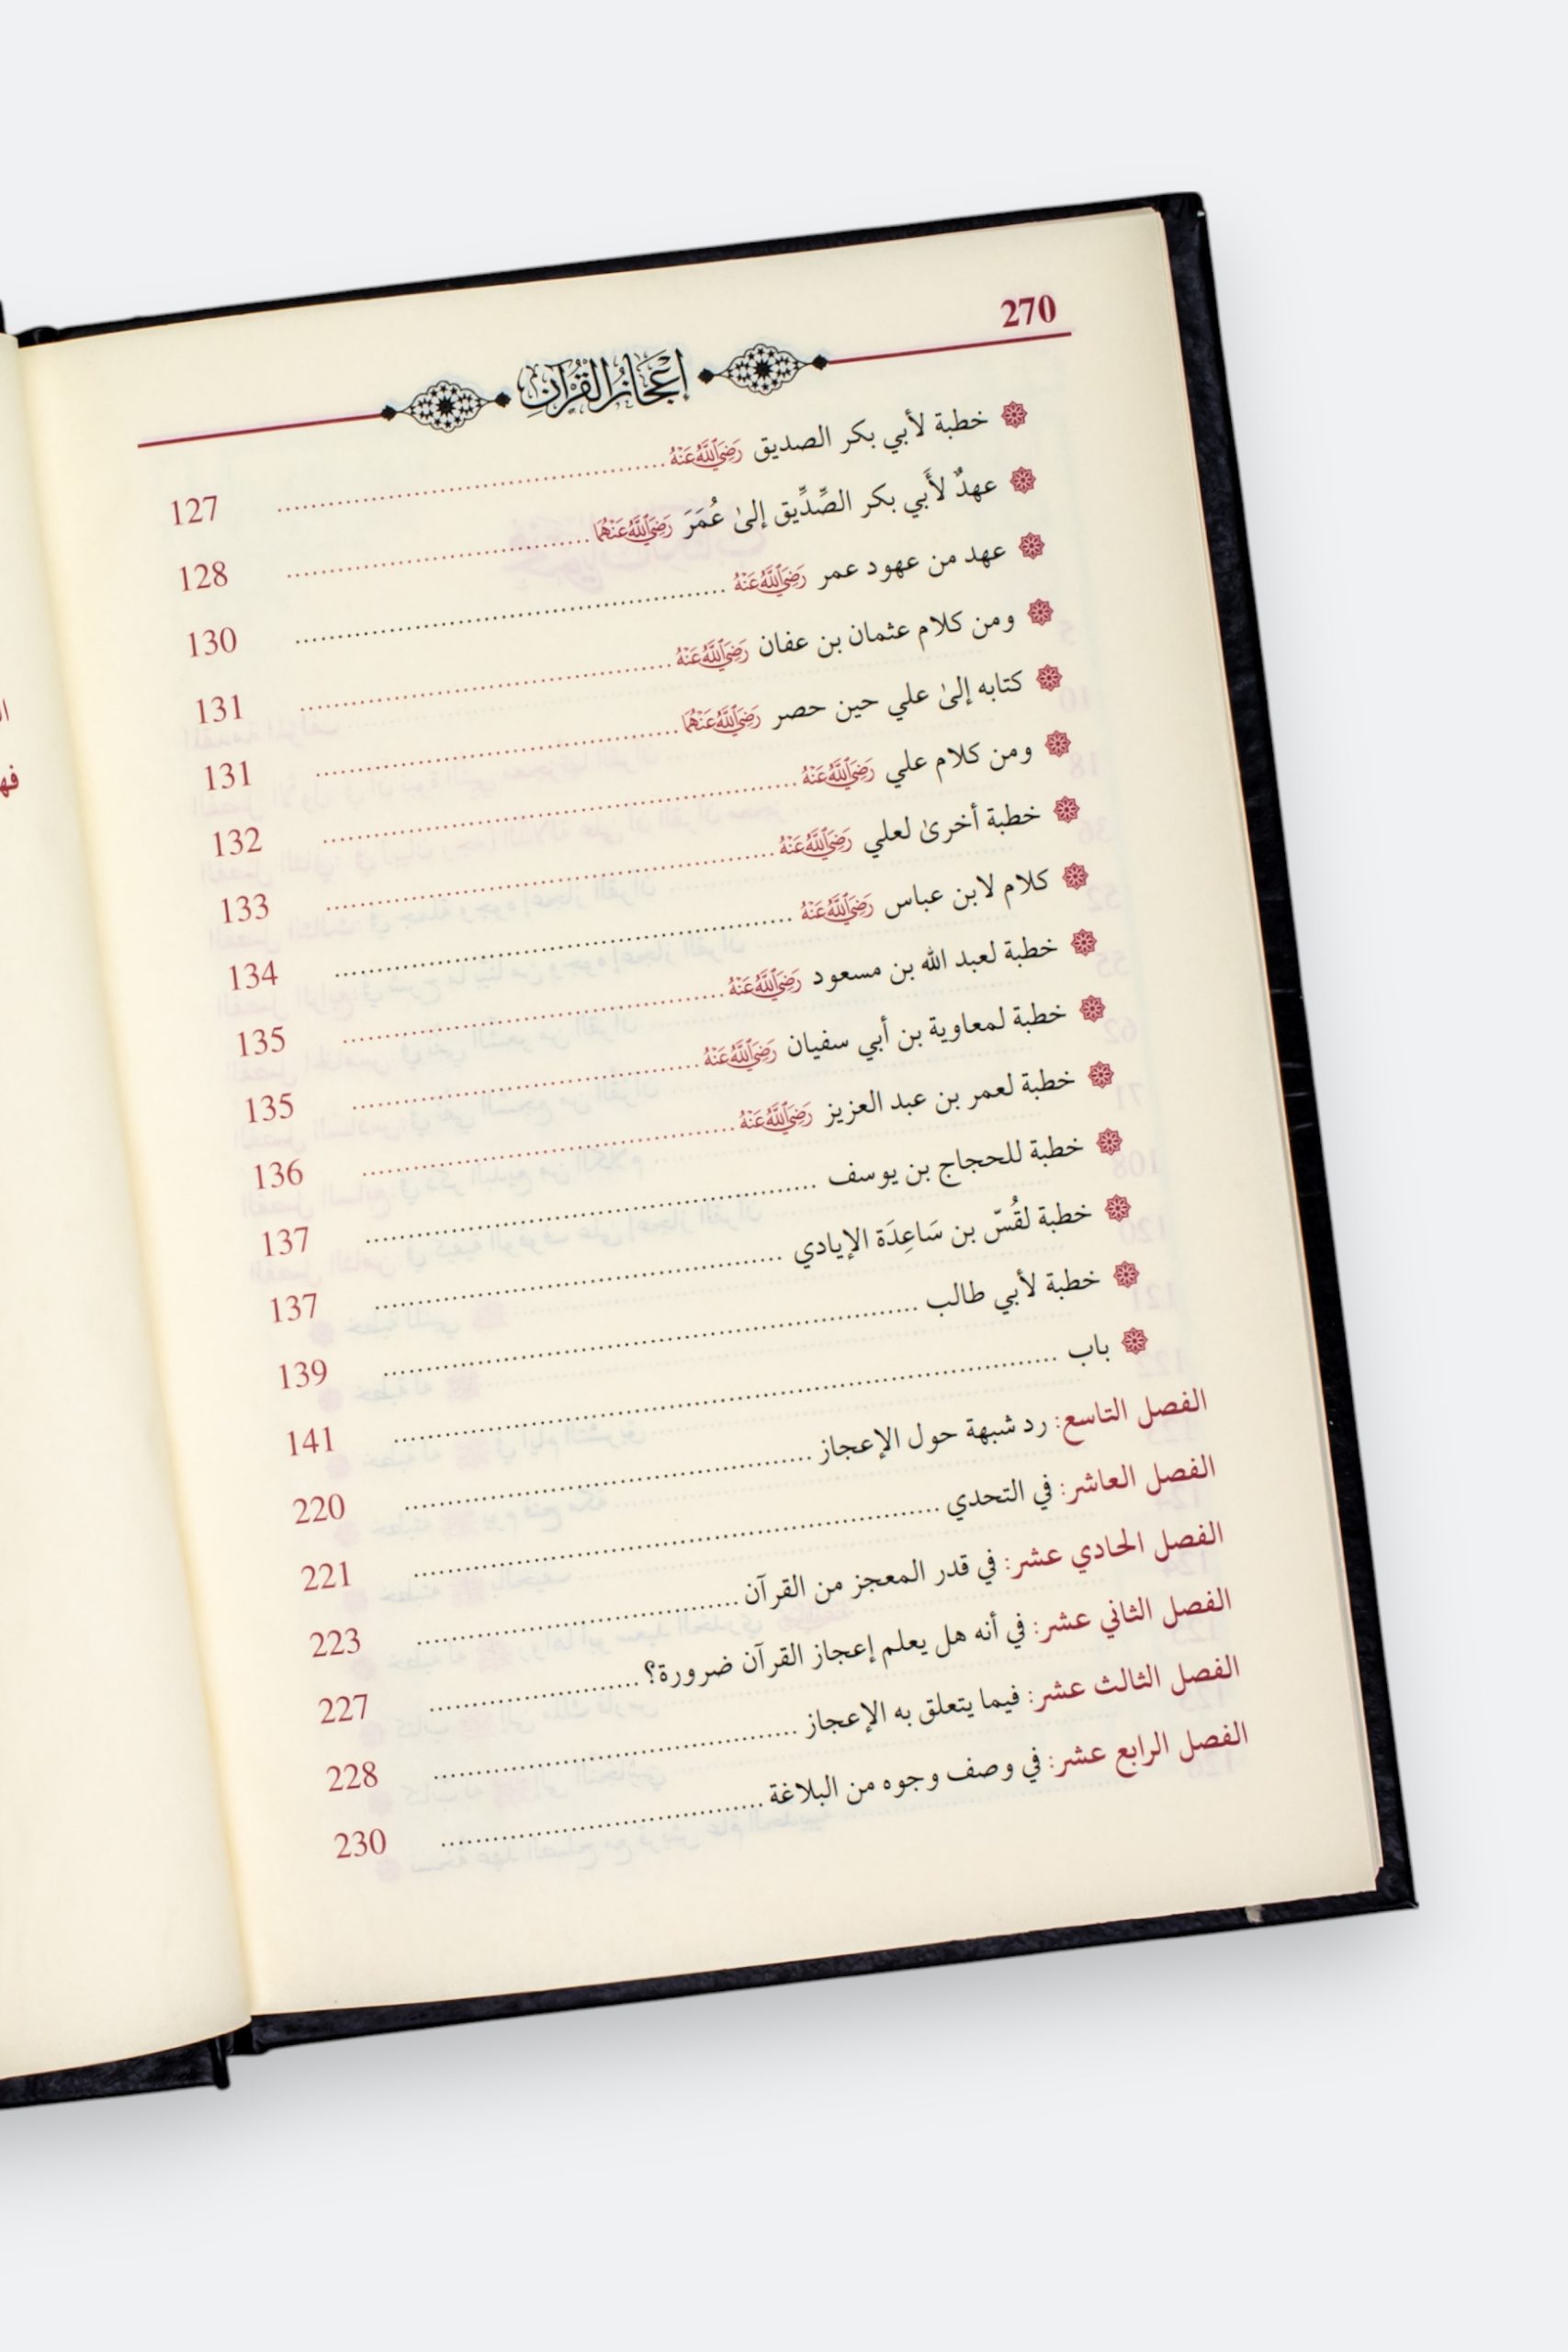 270
إعجاز القرآن
خطبة لأبي بكر الصديق رَضِيَ اللَّهُ عَنْهُ ........ 127
عهدٌ لأَبي بكر الصِّدِّيق إلىٰ عُمَرَ رَضِيَ اللَّهُ عَنْهُمَا ........ 128
عهد من عهود عمر رَضِيَ اللَّهُ عَنْهُ ........ 130
ومن كلام عثمان بن عفان رَضِيَ اللَّهُ عَنْهُ ........ 131
كتابه إلىٰ علي حين حصر رَضِيَ اللَّهُ عَنْهُمَا ........ 131
ومن كلام علي رَضِيَ اللَّهُ عَنْهُ ........ 132
خطبة أخرىٰ لعلي رَضِيَ اللَّهُ عَنْهُ ........ 133
كلام لابن عباس رَضِيَ اللَّهُ عَنْهُ ........ 134
خطبة لعبد الله بن مسعود رَضِيَ اللَّهُ عَنْهُ ........ 135
خطبة لمعاوية بن أبي سفيان رَضِيَ اللَّهُ عَنْهُ ........ 135
خطبة لعمر بن عبد العزيز رَضِيَ اللَّهُ عَنْهُ ........ 136
خطبة للحجاج بن يوسف ........ 137
خطبة لقُسّ بن سَاعِدَة الإيادي ........ 137
خطبة لأبي طالب ........ 139
باب ........ 141
الفصل التاسع: رد شبهة حول الإعجاز ........ 220
الفصل العاشر: في التحدي ........ 221
الفصل الحادي عشر: في قدر المعجز من القرآن ........ 223
الفصل الثاني عشر: في أنه هل يعلم إعجاز القرآن ضرورة؟ ........ 227
الفصل الثالث عشر: فيما يتعلق به الإعجاز ........ 228
الفصل الرابع عشر: في وصف وجوه من البلاغة ........ 230